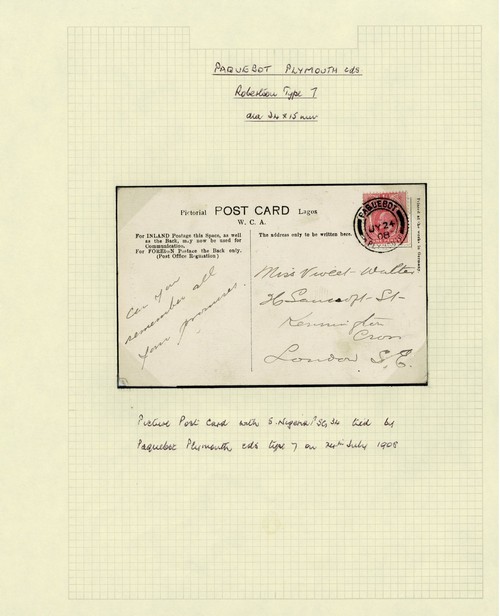 PAQUEBOT PLYMOUTH cds
Robertson Type 7
dia 24 x 15 mm
Pictorial POST CARD Lagos
W. C. A.
For INLAND Postage this Space, as well
as the Back, may now be used for
Communication.
For FOREIGN Postage the Back only.
(Post Office Regulation)
The address only to be written here.
Printed at the works in Germany.
PAQUEBOT
JY 24
08
Can you
remember all
your promises.
Miss Violet Walter
Sancroft St
Kennington
Cross
London S.E.
Picture Post Card with S. Nigeria SG 34 tied by
Paquebot Plymouth cds type 7 on 24th July 1908